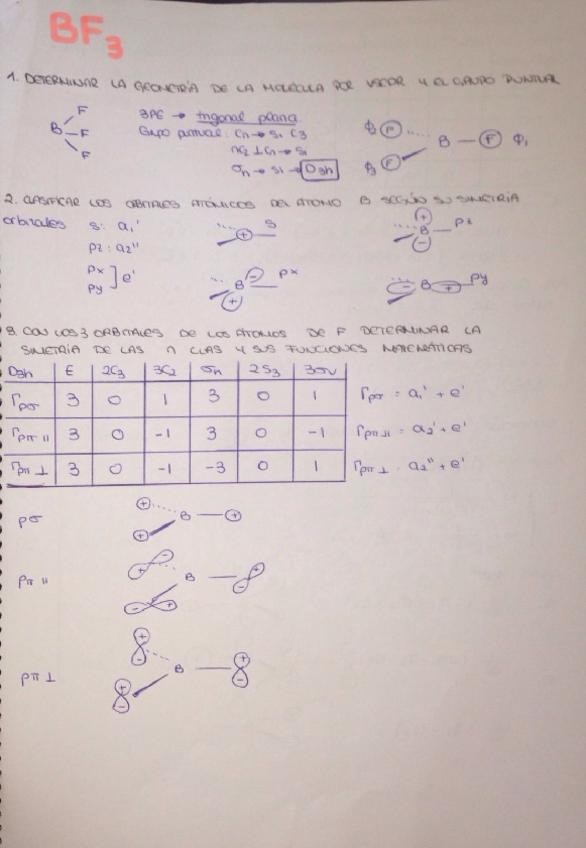 BF3
1. DETERMINAR LA GEOMETRÍA DE LA MOLÉCULA POR VSEPR Y EL GRUPO PUNTUAL
F
B F
F
3PE → trigonal plana
Grupo puntual: Cn → Si C3
nC2 ⊥ Cn → Si
σh → Si → D3h
Φ2 F B F Φ1
Φ3 F
2. CLASIFICAR LOS ORBITALES ATÓMICOS DEL ÁTOMO B SEGÚN SU SIMETRÍA
orbitales s: a1'
pz: a2''
px
py ] e'
+ S
+ B - pz
B - + px
- B + py
3. CON LOS 3 ORBITALES DE LOS ÁTOMOS DE F DETERMINAR LA
SIMETRÍA DE LAS n CLAS Y SUS FUNCIONES MATEMÁTICAS
D3h E 2C3 3C2 σh 2S3 3σv
Γpσ 3 0 1 3 0 1 Γpσ = a1' + e'
Γpπ∥ 3 0 -1 3 0 -1 Γpπ∥ = a2' + e'
Γpπ⊥ 3 0 -1 -3 0 1 Γpπ⊥ = a2'' + e'
pσ + + B +
pπ∥ + - B + - + -
pπ⊥ + - B + - + -